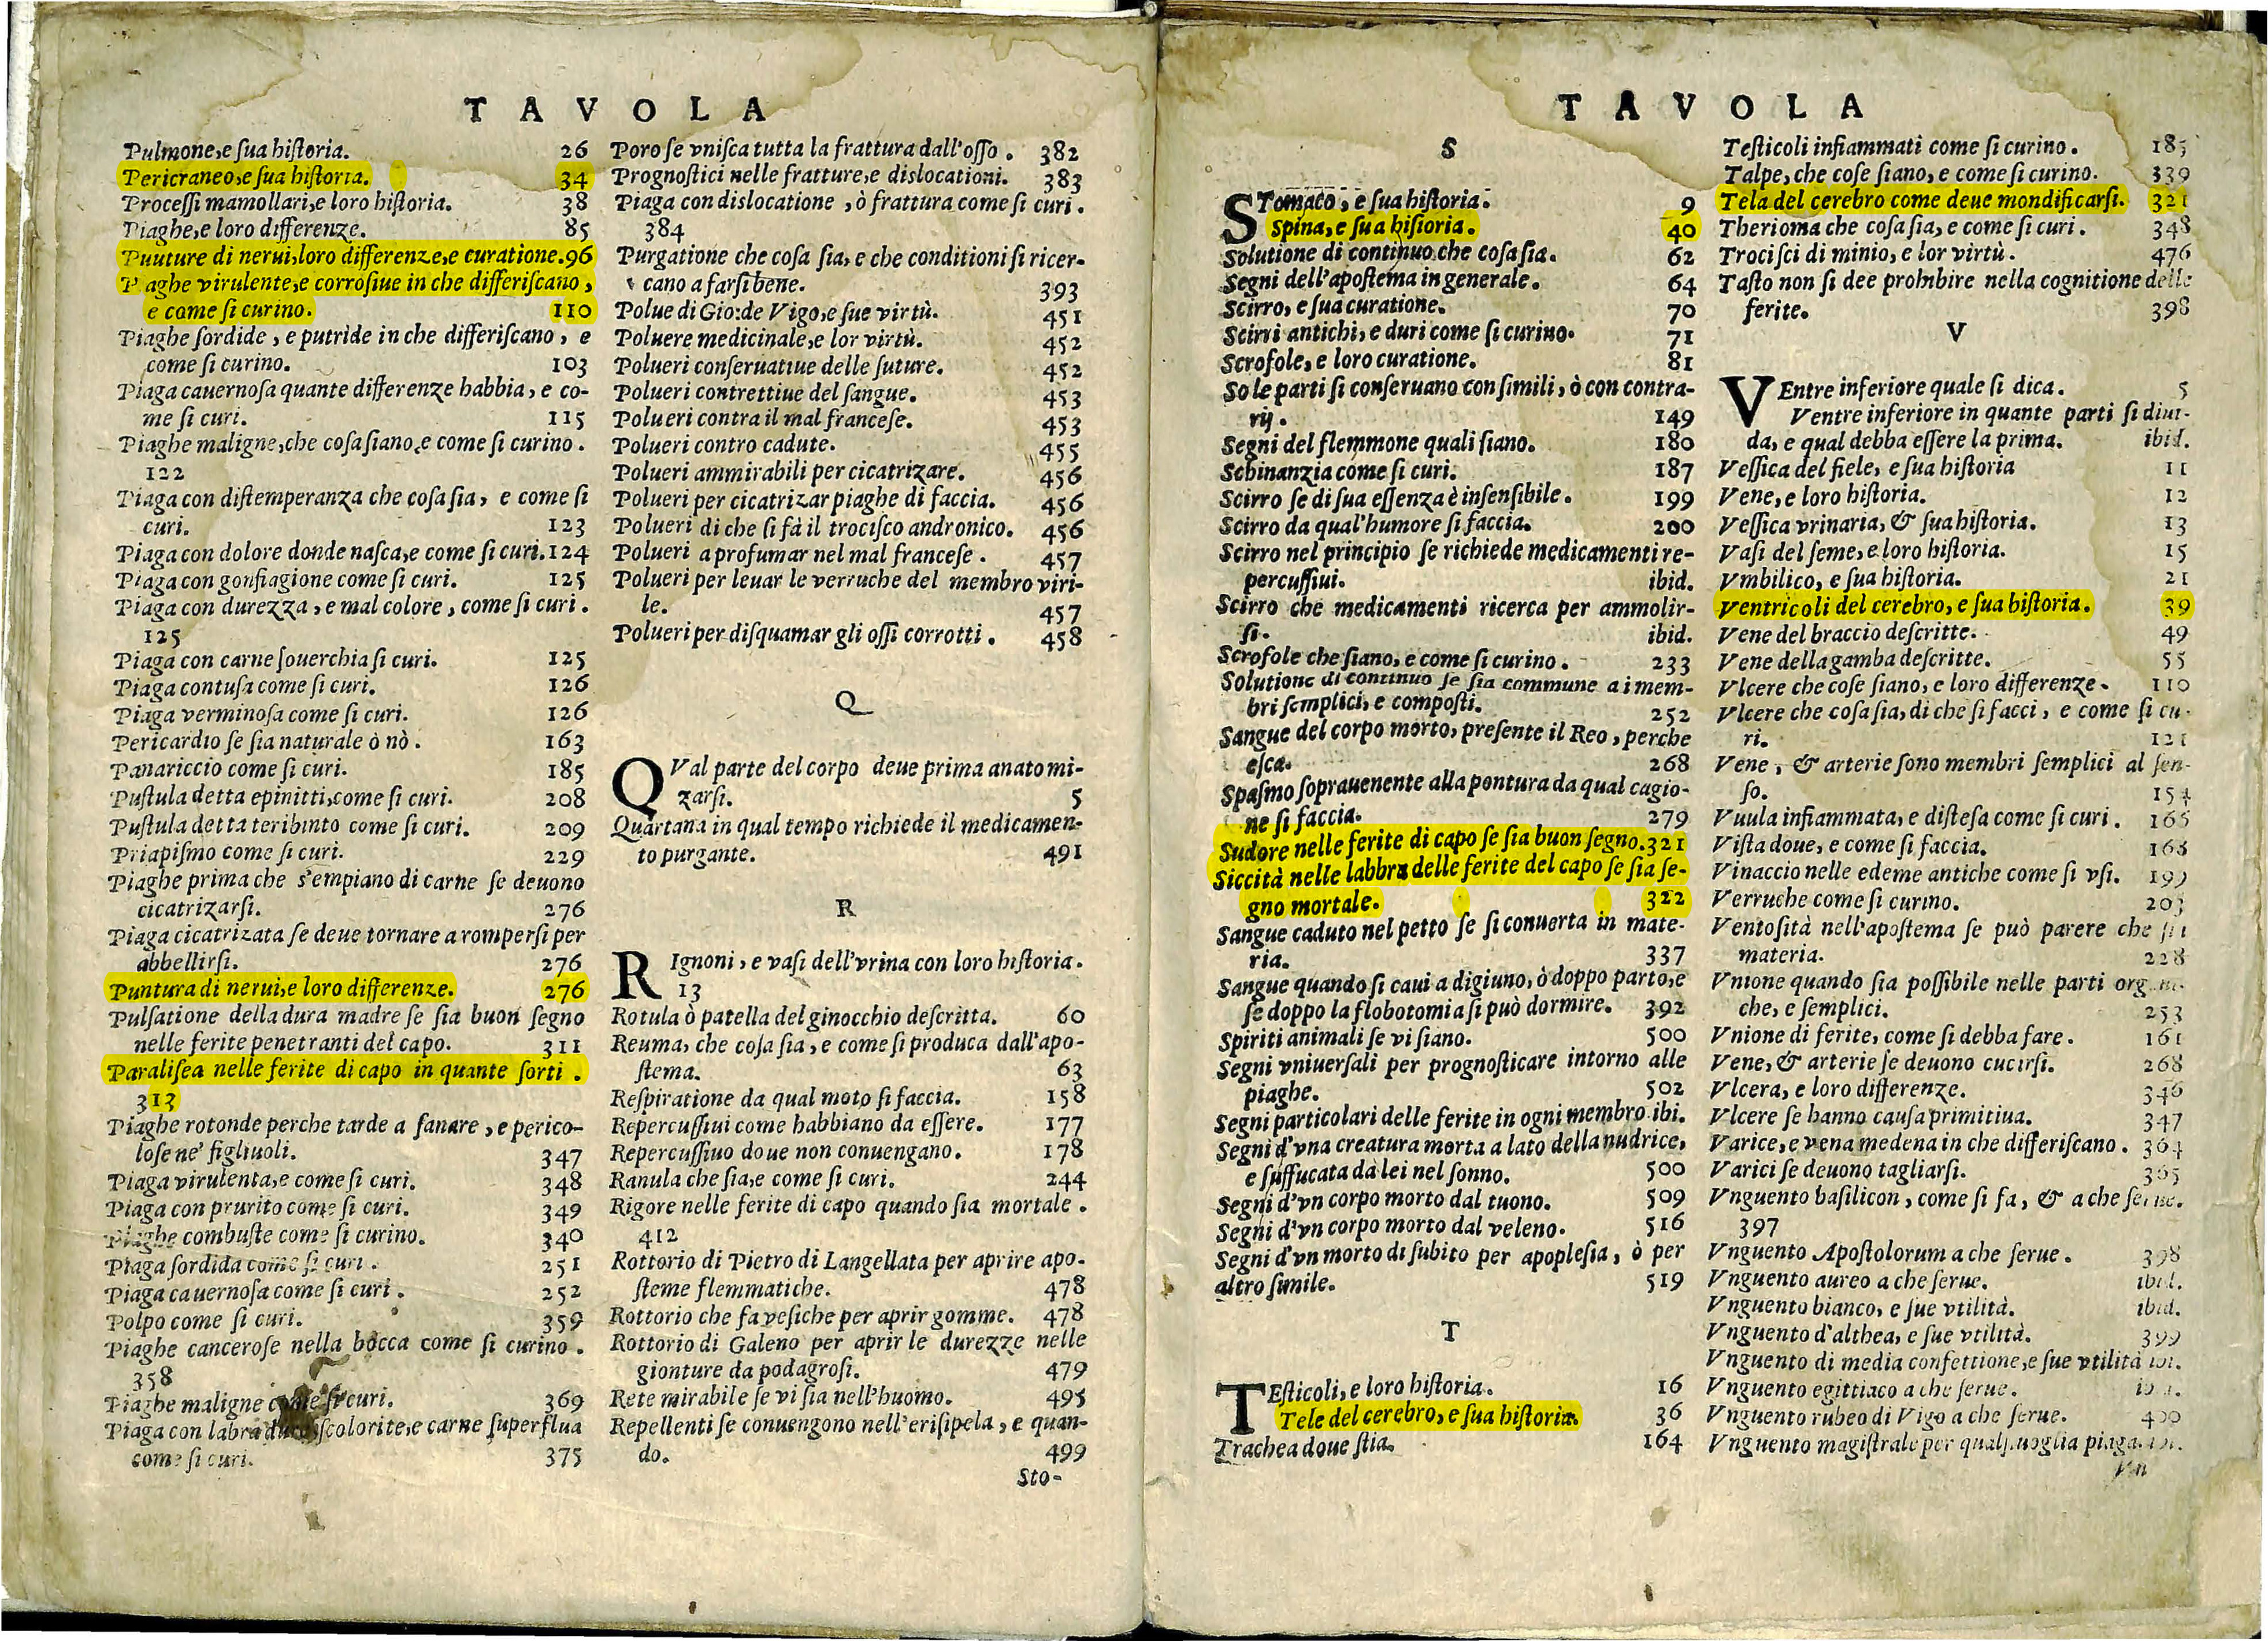 TAVOLA
Pulmone, e ſua hiſtoria. 26
Pericraneo, e ſua hiſtoria. 34
Proceſſi mamollari, e loro hiſtoria. 38
Piaghe, e loro differenze. 85
Puuture di nerui, loro differenze, e curatione. 96
P aghe virulente, e corroſiue in che differiſcano,
e come ſi curino. 110
Piaghe ſordide, e putride in che differiſcano, e
come ſi curino. 103
Piaga cauernoſa quante differenze habbia, e co-
me ſi curi. 115
Piaghe maligne, che coſa ſiano, e come ſi curino.
122
Piaga con diſtemperanza che coſa ſia, e come ſi
curi. 123
Piaga con dolore donde naſca, e come ſi curi. 124
Piaga con gonfiagione come ſi curi. 125
Piaga con durezza, e mal colore, come ſi curi.
125
Piaga con carne ſouerchia ſi curi. 125
Piaga contuſa come ſi curi. 126
Piaga verminoſa come ſi curi. 126
Pericardio ſe ſia naturale ò nò. 163
Panariccio come ſi curi. 185
Puſtula detta epinitti, come ſi curi. 208
Puſtula detta teribinto come ſi curi. 209
Priapiſmo come ſi curi. 229
Piaghe prima che s'empiano di carne ſe deuono
cicatrizarſi. 276
Piaga cicatrizata ſe deue tornare a romperſi per
abbellirſi. 276
Puntura di nerui, e loro differenze. 276
Pulſatione della dura madre ſe ſia buon ſegno
nelle ferite penetranti del capo. 311
Paraliſea nelle ferite di capo in quante ſorti.
313
Piaghe rotonde perche tarde a ſanare, e perico-
loſe ne' figliuoli. 347
Piaga virulenta, e come ſi curi. 348
Piaga con prurito come ſi curi. 349
Piaghe combuſte come ſi curino. 340
Piaga ſordida come ſi curi. 251
Piaga cauernoſa come ſi curi. 252
Polpo come ſi curi. 359
Piaghe canceroſe nella bocca come ſi curino.
358
Piaghe maligne come ſi curi. 369
Piaga con labra dure ſcolorite, e carne ſuperflua
come ſi curi. 375
Poro ſe vniſca tutta la frattura dall'oſſo. 382
Prognoſtici nelle fratture, e dislocationi. 383
Piaga con dislocatione, ò frattura come ſi curi.
384
Purgatione che coſa ſia, e che conditioni ſi ricer-
cano a farſi bene. 393
Polue di Gio: de Vigo, e ſue virtù. 451
Poluere medicinale, e lor virtù. 452
Polueri conſeruatiue delle ſuture. 452
Polueri contrettiue del ſangue. 453
Polueri contra il mal franceſe. 453
Polueri contro cadute. 455
Polueri ammirabili per cicatrizare. 456
Polueri per cicatrizar piaghe di faccia. 456
Polueri di che ſi fà il trociſco andronico. 456
Polueri a profumar nel mal franceſe. 457
Polueri per leuar le verruche del membro viri-
le. 457
Polueri per diſquamar gli oſſi corrotti. 458
Q
QVal parte del corpo deue prima anatomi-
zarſi. 5
Quartana in qual tempo richiede il medicamen-
to purgante. 491
R
RIgnoni, e vaſi dell'vrina con loro hiſtoria.
13
Rotula ò patella del ginocchio deſcritta. 60
Reuma, che coſa ſia, e come ſi produca dall'apo-
ſtema. 63
Reſpiratione da qual moto ſi faccia. 158
Repercuſſiui come habbiano da eſſere. 177
Repercuſſiuo doue non conuengano. 178
Ranula che ſia, e come ſi curi. 244
Rigore nelle ferite di capo quando ſia mortale.
412
Rottorio di Pietro di Langellata per aprire apo-
ſteme flemmatiche. 478
Rottorio che fa veſiche per aprir gomme. 478
Rottorio di Galeno per aprir le durezze nelle
gionture da podagroſi. 479
Rete mirabile ſe vi ſia nell'huomo. 495
Repellenti ſe conuengono nell'eriſipela, e quan-
do. 499
Sto-
TAVOLA
S
STomaco, e ſua hiſtoria. 9
Spina, e ſua hiſtoria. 40
Solutione di continuo che coſa ſia. 62
Segni dell'apoſtema in generale. 64
Scirro, e ſua curatione. 70
Scirri antichi, e duri come ſi curino. 71
Scrofole, e loro curatione. 81
So le parti ſi conſeruano con ſimili, ò con contra-
rij. 149
Segni del flemmone quali ſiano. 180
Schinanzia come ſi curi. 187
Scirro ſe di ſua eſſenza è inſenſibile. 199
Scirro da qual'humore ſi faccia. 200
Scirro nel principio ſe richiede medicamenti re-
percuſſiui. ibid.
Scirro che medicamenti ricerca per ammolir-
ſi. ibid.
Scrofole che ſiano, e come ſi curino. 233
Solutione di continuo ſe ſia commune a i mem-
bri ſemplici, e compoſti. 252
Sangue del corpo morto, preſente il Reo, perche
eſca. 268
Spaſmo ſoprauenente alla pontura da qual cagio-
ne ſi faccia. 279
Sudore nelle ferite di capo ſe ſia buon ſegno. 321
Siccità nelle labbra delle ferite del capo ſe ſia ſe-
gno mortale. 322
Sangue caduto nel petto ſe ſi conuerta in mate-
ria. 337
Sangue quando ſi caui a digiuno, ò doppo parto, e
ſe doppo la flobotomia ſi può dormire. 392
Spiriti animali ſe vi ſiano. 500
Segni vniuerſali per prognoſticare intorno alle
piaghe. 502
Segni particolari delle ferite in ogni membro. ibi.
Segni d'vna creatura morta a lato della nudrice,
e ſuffucata da lei nel ſonno. 500
Segni d'vn corpo morto dal tuono. 509
Segni d'vn corpo morto dal veleno. 516
Segni d'vn morto di ſubito per apopleſia, ò per
altro ſimile. 519
T
TEſticoli, e loro hiſtoria. 16
Tele del cerebro, e ſua hiſtoria. 36
Trachea doue ſtia. 164
Teſticoli infiammati come ſi curino. 185
Talpe, che coſe ſiano, e come ſi curino. 339
Tela del cerebro come deue mondificarſi. 321
Therioma che coſa ſia, e come ſi curi. 348
Trociſci di minio, e lor virtù. 476
Taſto non ſi dee prohibire nella cognitione delle
ferite. 398
V
VEntre inferiore quale ſi dica. 5
Ventre inferiore in quante parti ſi diui-
da, e qual debba eſſere la prima. ibid.
Veſſica del fiele, e ſua hiſtoria 11
Vene, e loro hiſtoria. 12
Veſſica vrinaria, & ſua hiſtoria. 13
Vaſi del ſeme, e loro hiſtoria. 15
Vmbilico, e ſua hiſtoria. 21
Ventricoli del cerebro, e ſua hiſtoria. 39
Vene del braccio deſcritte. 49
Vene della gamba deſcritte. 55
Vlcere che coſe ſiano, e loro differenze. 110
Vlcere che coſa ſia, di che ſi facci, e come ſi cu-
ri. 121
Vene, & arterie ſono membri ſemplici al ſen-
ſo. 154
Vuula infiammata, e diſteſa come ſi curi. 165
Viſta doue, e come ſi faccia. 168
Vinaccio nelle edeme antiche come ſi vſi. 199
Verruche come ſi curino. 203
Ventoſità nell'apoſtema ſe può parere che ſia
materia. 228
Vnione quando ſia poſſibile nelle parti
che, e ſemplici. 253
Vnione di ferite, come ſi debba fare. 161
Vene, & arterie ſe deuono cucirſi. 268
Vlcera, e loro differenze. 346
Vlcere ſe hanno cauſa primitiua. 347
Varice, e vena medena in che differiſcano. 364
Varici ſe deuono tagliarſi. 365
Vnguento baſilicon, come ſi fa, & a che ſerue.
397
Vnguento Apoſtolorum a che ſerue. 398
Vnguento aureo a che ſerue. ibid.
Vnguento bianco, e ſue vtilità. ibid.
Vnguento d'althea, e ſue vtilità. 399
Vnguento di media confettione, e ſue vtilità ibi.
Vnguento egittiaco a che ſerue.
Vnguento rubeo di Vigo a che ſerue. 400
Vnguento magiſtrale per qualſiuoglia piaga. ibi.
Vn